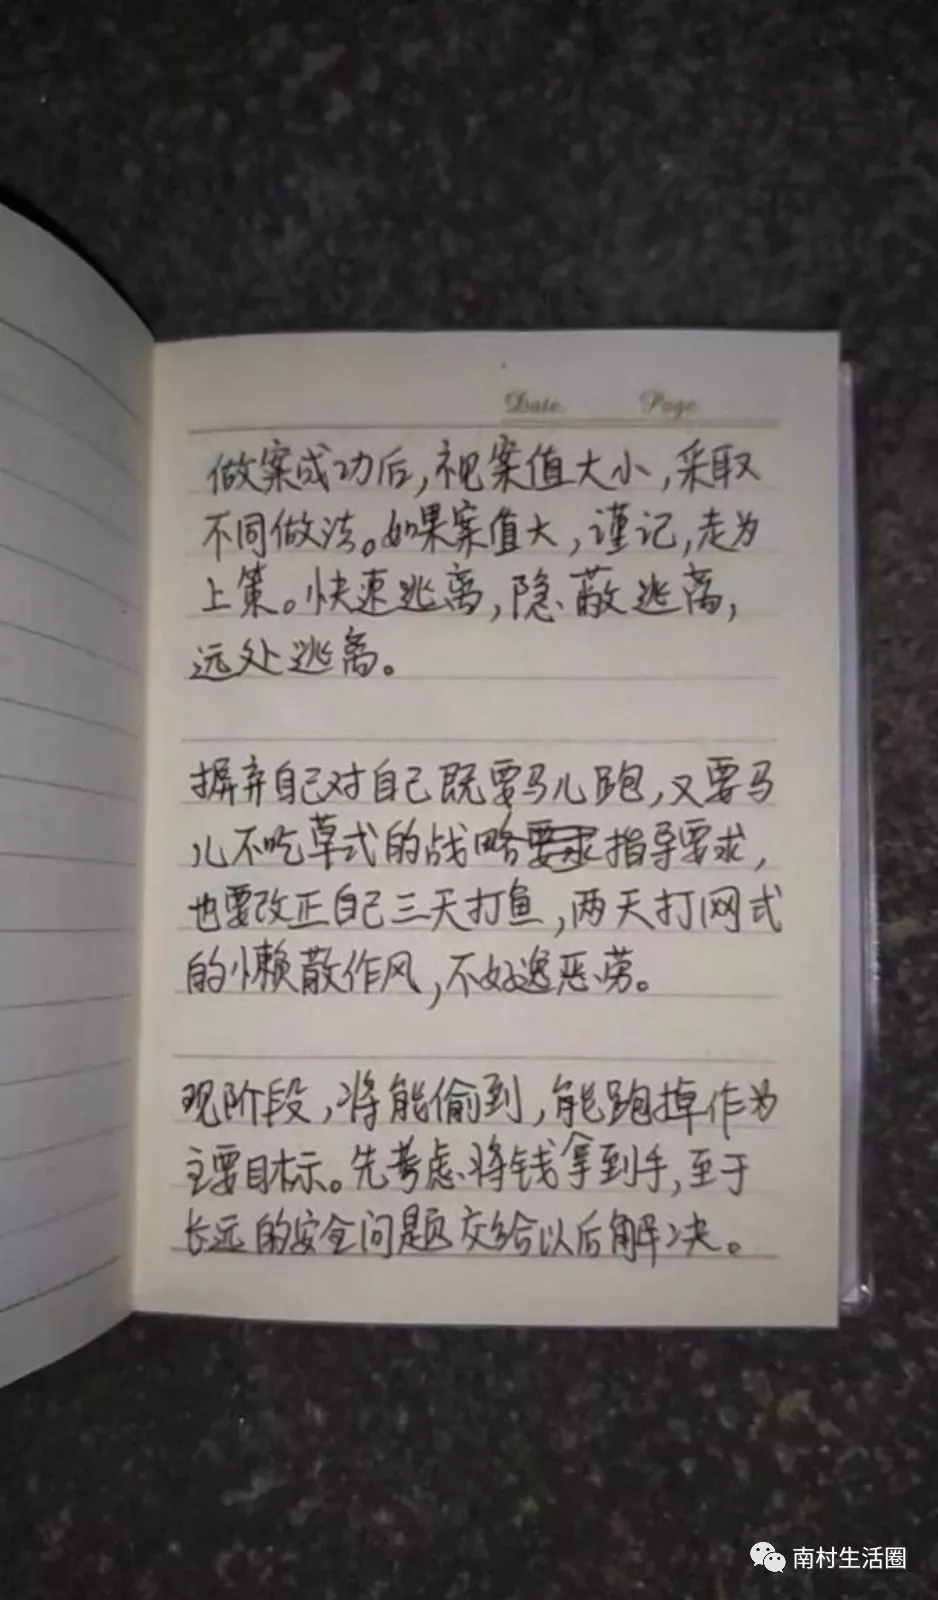 Date Page
做案成功后，视案值大小，采取
不同做法。如果案值大，谨记，走为
上策。快速逃离，隐蔽逃离，
远处逃离。
摒弃自己对自己既要马儿跑，又要马
儿不吃草式的战略要求指导要求，
也要改正自己三天打鱼，两天打网式
的懒散作风，不好逸恶劳。
现阶段，将能偷到，能跑掉作为
主要目标。先考虑将钱拿到手，至于
长远的安全问题交给以后解决。
南村生活圈